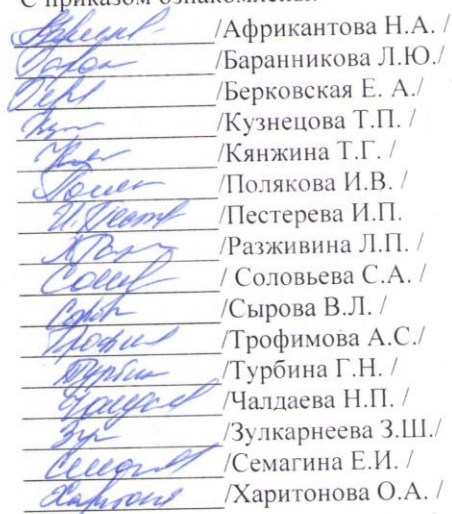 С приказом ознакомлены:
/Африкантова Н.А. /
/Баранникова Л.Ю./
/Берковская Е. А./
/Кузнецова Т.П. /
/Кянжина Т.Г. /
/Полякова И.В. /
/Пестерева И.П.
/Разживина Л.П. /
/ Соловьева С.А. /
/Сырова В.Л. /
/Трофимова А.С./
/Турбина Г.Н. /
/Чалдаева Н.П. /
/Зулкарнеева З.Ш./
/Семагина Е.И. /
/Харитонова О.А. /